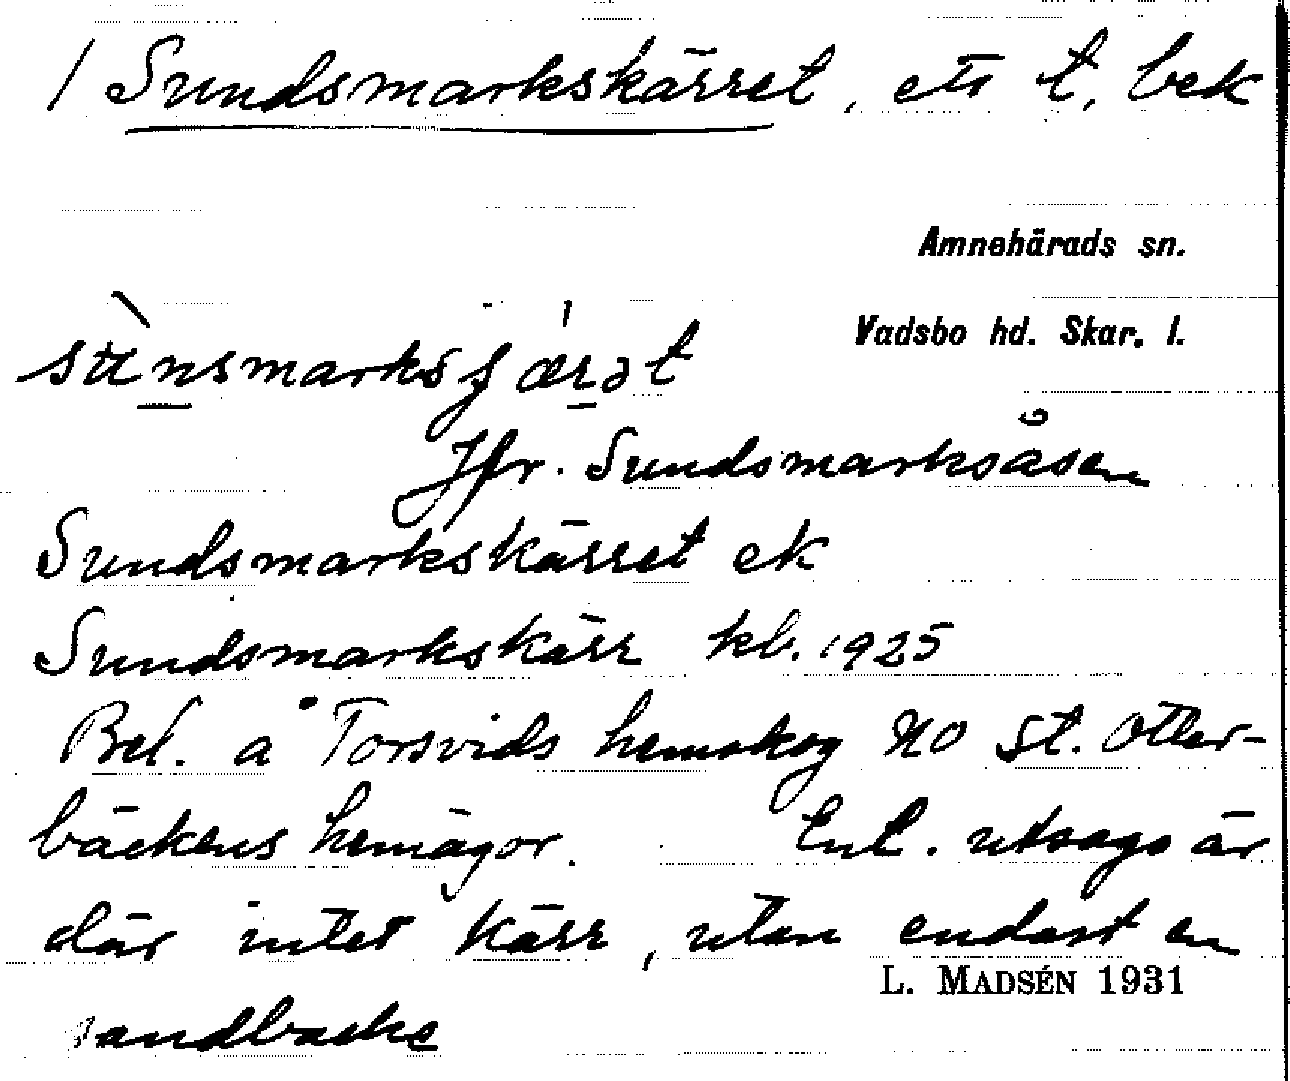 / Sundsmarkskärret, ett t, bek
Amnehärads sn.
Vadsbo hd. Skar. l.
Jfr. Sundsmarksåsen
Sundsmarkskärret ek
Sundsmarkskärr kb. 1925
Bel. å Torsvids hemskog NO St. Otter-
bäckens hemägor. Enl. utsago är
där intet kärr, utan endast en
L. MADSÉN 1931
sandbacke